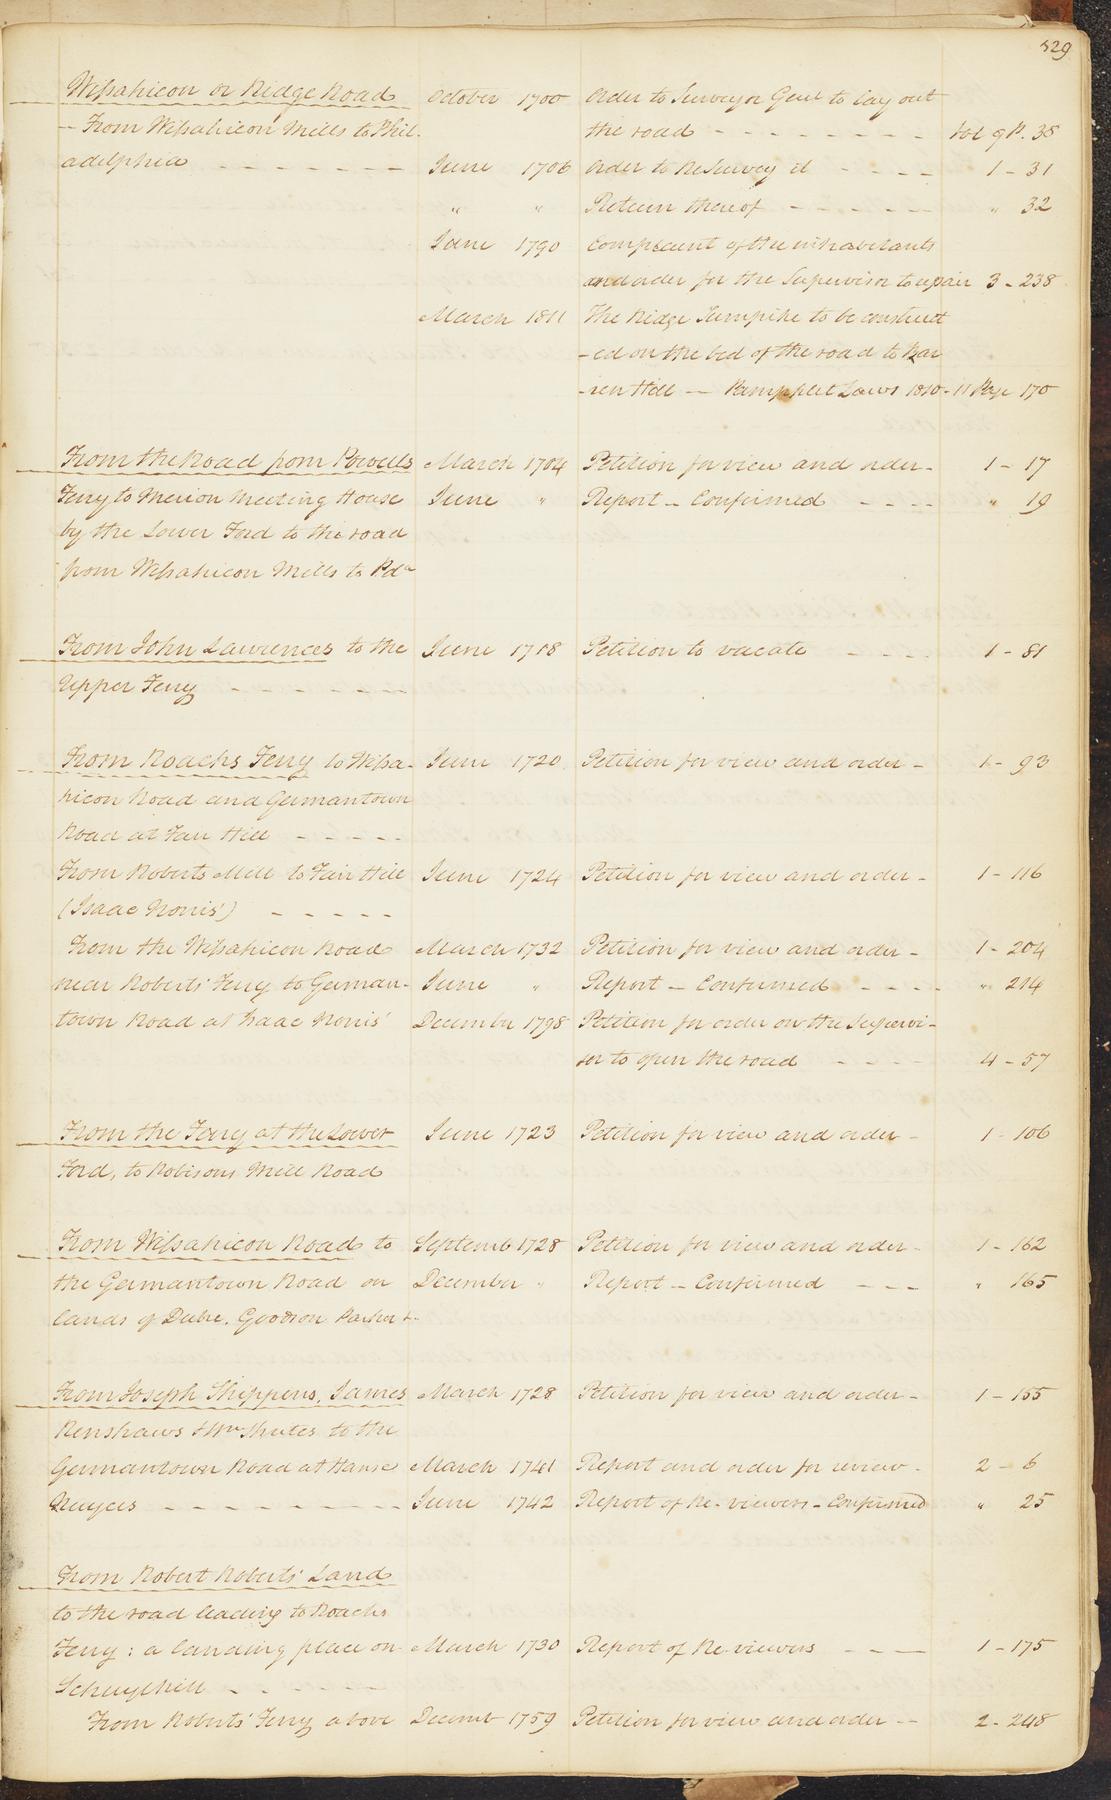 329
Wissahicon or Ridge Road October 1700 Order to Surveyor Genl to lay out
- From Wissahicon Mills to Phil- the road - - - - - - - - Vol 9 P. 38
adelphia - - - - - - - June 1706 Order to Resurvey it - - - - 1 - 31
" " Return thereof - - - - - " 32
June 1790 Complaint of the inhabitants
and order for the Supervisor to repair 3 - 238
March 1811 The Ridge Turnpike to be construct
-ed on the bed of the road to Bar
-ren Hill — Pamphlet Laws 1810-11 Page 170
From the Road from Powells March 1704 Petition for view and order - 1 - 17
Ferry to Merion Meeting House June " Report - Confirmed - - - - " 19
by the Lower Ford to the road
from Wissahicon Mills to Pda
From John Lawrences to the June 1718 Petition to vacate - - - - 1 - 81
Upper Ferry - - - - - - -
From Roachs Ferry to Wissa- June 1720 Petition for view and order - 1 - 93
hicon Road and Germantown
Road at Fair Hill - - - - -
From Roberts Mill to Fair Hill June 1724 Petition for view and order - 1 - 116
(Isaac Norris') - - - - -
From the Wissahicon Road March 1732 Petition for view and order - 1 - 204
near Roberts' Ferry to German- June " Report - Confirmed - - - - " 214
town Road at Isaac Norris' December 1798 Petition for order on the Supervi-
sor to open the road - - - - 4 - 57
From the Ferry at the Lower June 1723 Petition for view and order - 1 - 106
Ford, to Robisons Mill Road
From Wissahicon Road to Septemb 1728 Petition for view and order - 1 - 162
the Germantown Road on December " Report - Confirmed - - - " 165
lands of Goodson Parker &
From Joseph Shippens, James March 1728 Petition for view and order - 1 - 155
Renshaws & Wm Shutes to the
Germantown Road at Hanse March 1741 Report and order for review - 2 - 6
- - - - - - - - - June 1742 Report of Re-viewers - Confirmed " 25
From Robert Roberts' Land
to the road leading to Roachs
Ferry : a landing place on March 1730 Report of Re-viewers - - - 1 - 175
Schuylkill - - - - - -
From Roberts' Ferry above Decemb 1759 Petition for view and order - - 2 - 248